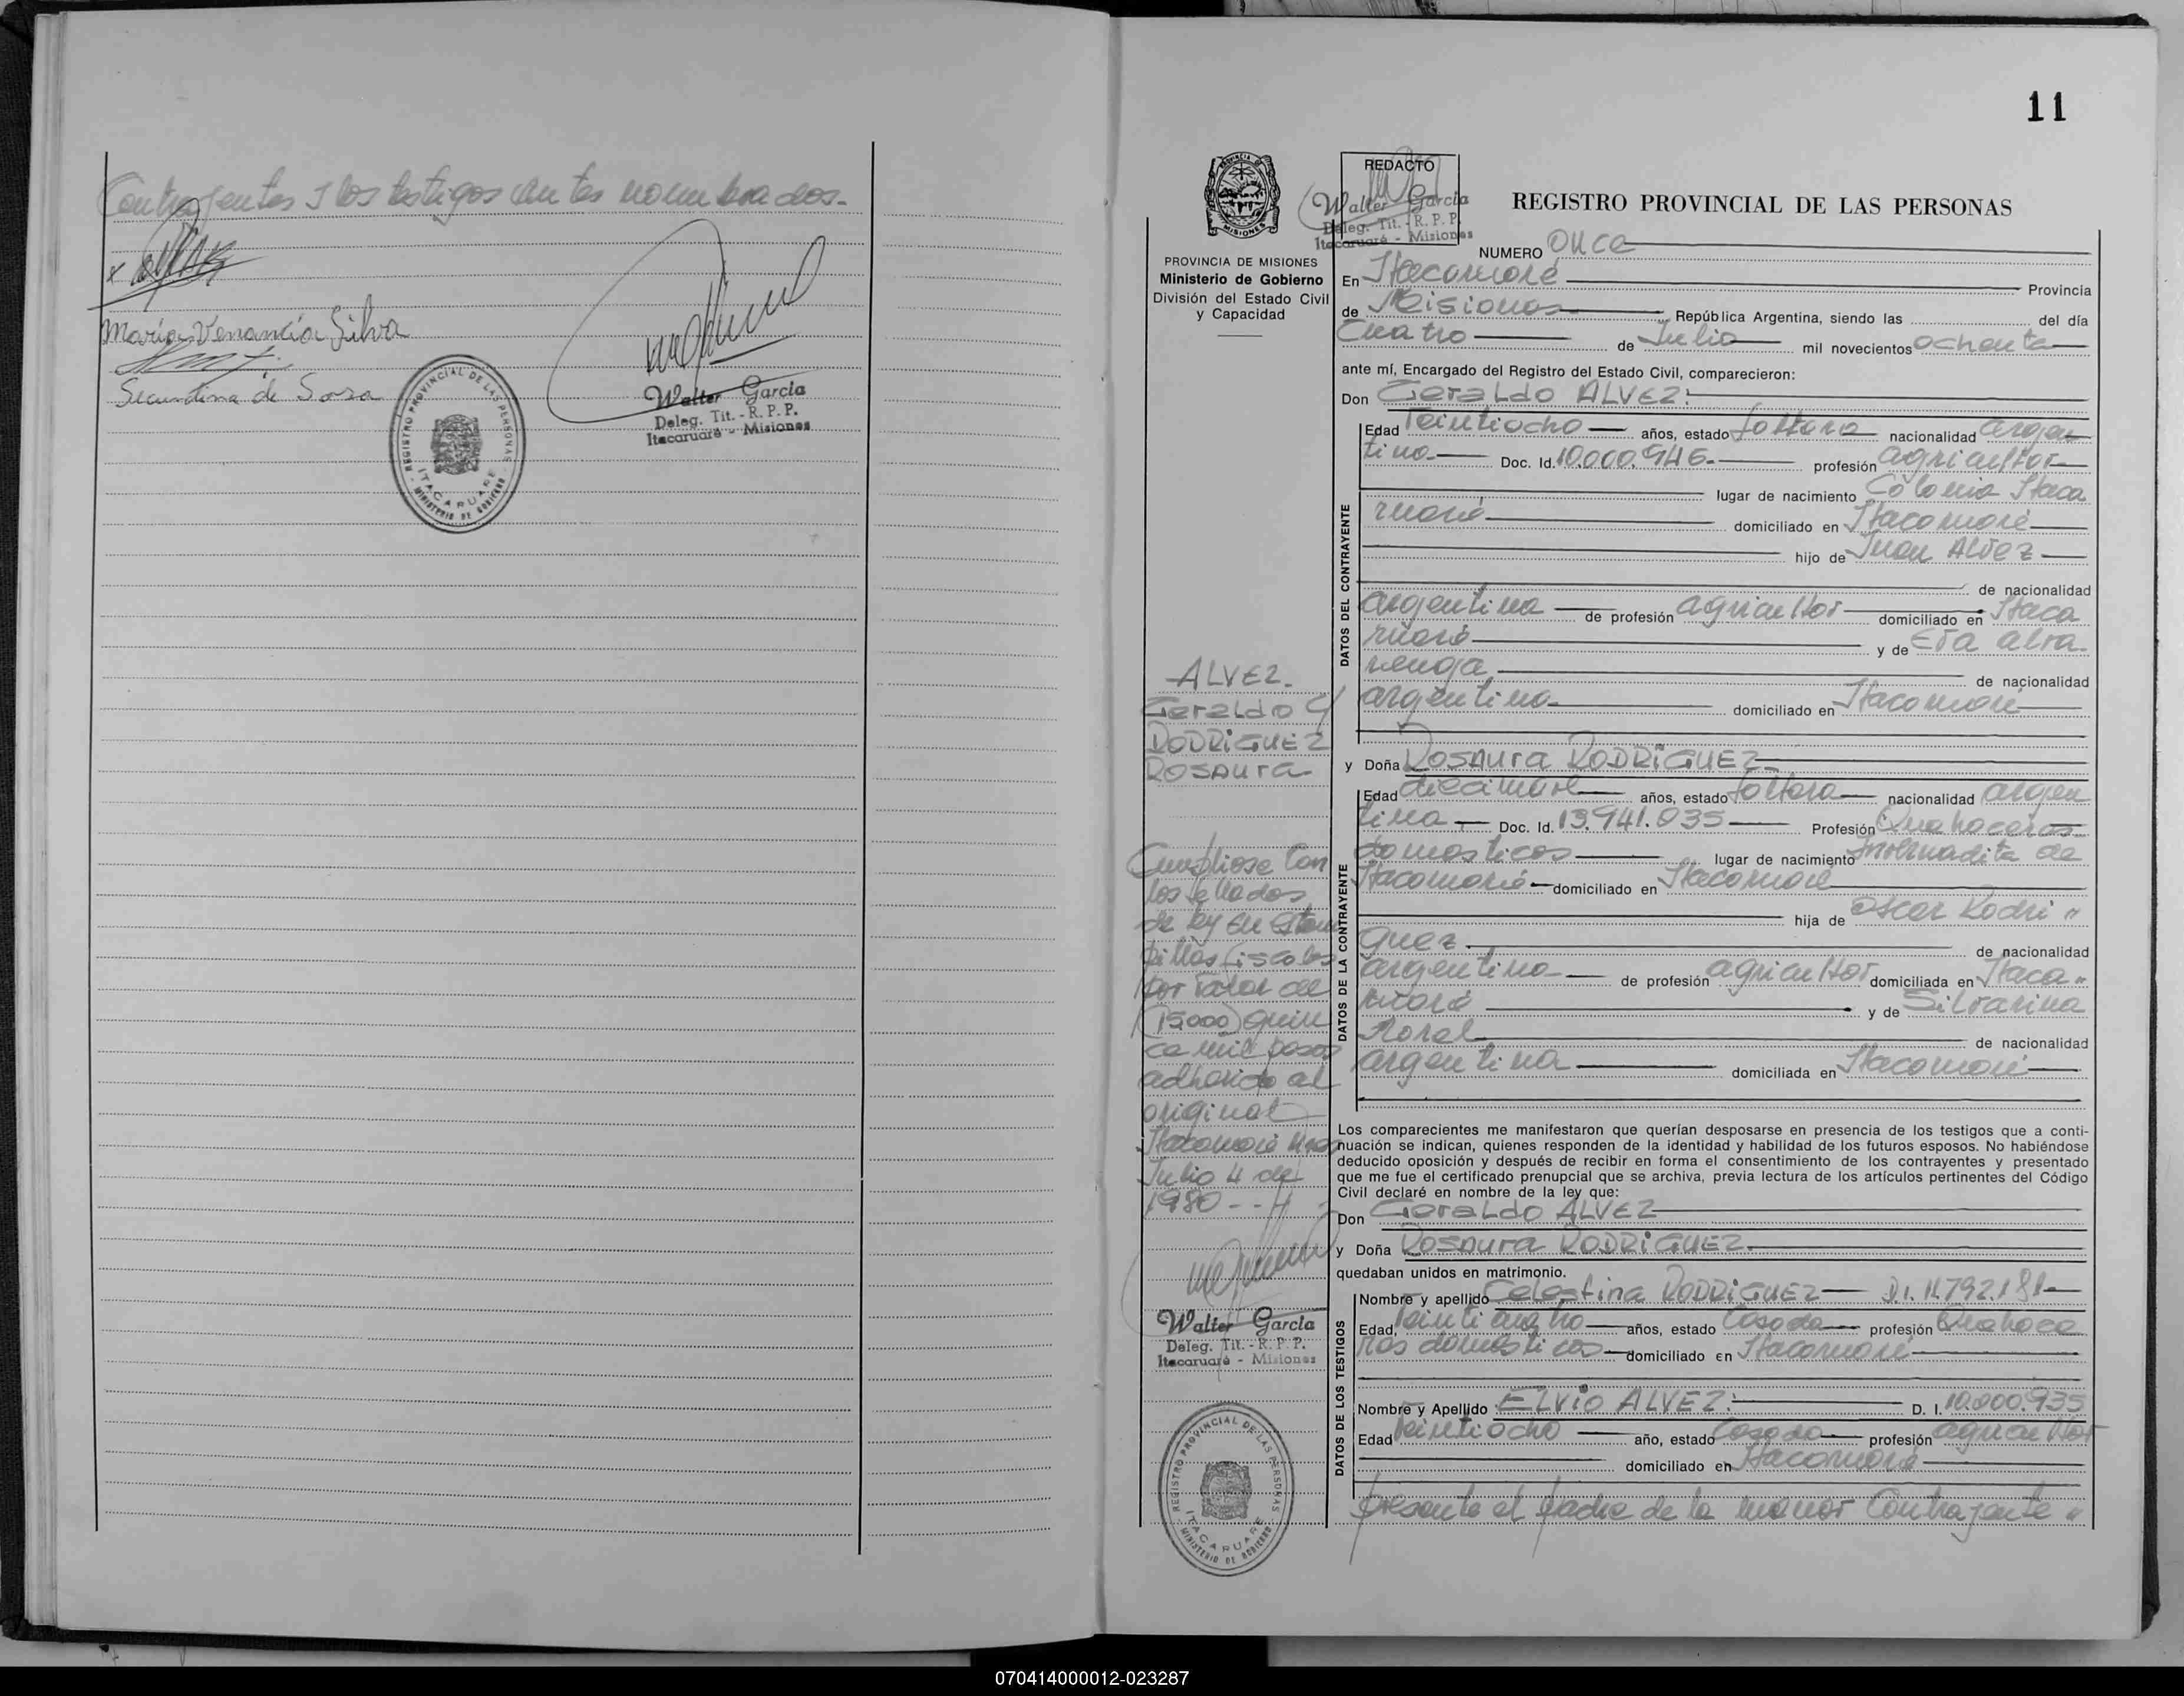 Contrayentes y los testigos antes nombrados.-
María Venancia Silva
Secundina de Sosa
REGISTRO PROVINCIAL DE LAS PERSONAS
ITACARUARE
MINISTERIO DE GOBIERNO
Walter Garcia
Deleg. Tit. - R. P. P.
Itacaruaré - Misiones
11
PROVINCIA DE MISIONES
Ministerio de Gobierno
División del Estado Civil
y Capacidad
REDACTO
Walter Garcia
Deleg. Tit. - R. P. P.
Itacaruaré - Misiones
REGISTRO PROVINCIAL DE LAS PERSONAS
NUMERO Once
En Itacaruaré Provincia
de Misiones República Argentina, siendo las del día
Cuatro de Julio mil novecientos ochenta
ante mí, Encargado del Registro del Estado Civil, comparecieron:
Don Geraldo ALVEZ.
DATOS DEL CONTRAYENTE
Edad Veintiocho años, estado soltero nacionalidad argen
tina Doc. Id. 10.000.946.- profesión agricultor
lugar de nacimiento Colonia Itaca
ruaré domiciliado en Itacaruaré
hijo de Juan ALVEZ
de nacionalidad
argentina de profesión agricultor domiciliado en Itaca
ruaré y de Eva alva-
renga de nacionalidad
argentina domiciliado en Itacaruaré
y Doña ROSAURA RODRIGUEZ
DATOS DE LA CONTRAYENTE
Edad diecinueve años, estado soltera nacionalidad argen
tina Doc. Id. 13.941.035 Profesión Quehaceres
domesticos lugar de nacimiento Invernadita de
Itacaruaré domiciliado en Itacaruaré
hija de Oscar Rodri"
guez de nacionalidad
argentina de profesión agricultor domiciliada en Itaca"
ruaré y de Silvarina
de nacionalidad
argentina domiciliada en Itacaruaré
Los comparecientes me manifestaron que querían desposarse en presencia de los testigos que a conti-
nuación se indican, quienes responden de la identidad y habilidad de los futuros esposos. No habiéndose
deducido oposición y después de recibir en forma el consentimiento de los contrayentes y presentado
que me fue el certificado prenupcial que se archiva, previa lectura de los artículos pertinentes del Código
Civil declaré en nombre de la ley que:
Don Geraldo ALVEZ
y Doña ROSAURA RODRIGUEZ.
quedaban unidos en matrimonio.
DATOS DE LOS TESTIGOS
Nombre y apellido Celestina RODRIGUEZ D.I. 11.792.181
Edad, Veinticuatro años, estado Casada profesión Quehace
res domesticos domiciliado en Itacaruaré
Nombre y Apellido ELVIO ALVEZ. D. I. 10.000.935
Edad Veintiocho año, estado Casado profesión agricultor
domiciliado en Itacaruaré
presente el padre de la menor Contrayente "
ALVEZ.
Geraldo y
RODRIGUEZ
ROSAURA
Cumpliose Con
los sellados
de ley en estam
pillas fiscales
por valor de
(15000) quin
ce mil pesos
adherido al
original
Itacaruaré
Julio 4 de
1980
Walter Garcia
Deleg. Tit. - R. P. P.
Itacaruaré - Misiones
REGISTRO PROVINCIAL DE LAS PERSONAS
ITACARUARE
MINISTERIO DE GOBIERNO
070414000012-023287